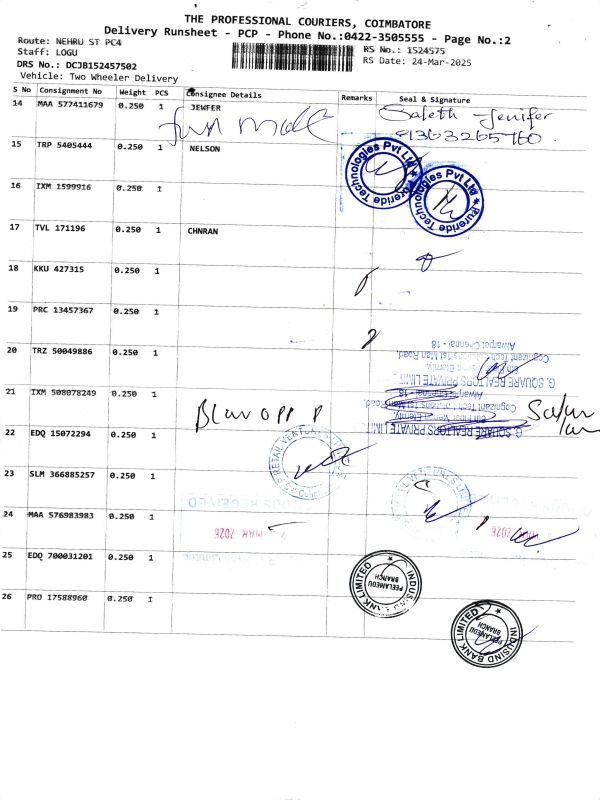 THE PROFESSIONAL COURIERS, COIMBATORE
Delivery Runsheet - PCP - Phone No.:0422-3505555 - Page No.:2
Route: NEHRU ST PC4
RS No.: 1524575
Staff: LOGU
RS Date: 24-Mar-2025
DRS No.: DCJB152457502
Vehicle: Two Wheeler Delivery
S No Consignment No Weight PCS Consignee Details Remarks Seal & Signature
14 MAA 577411679 0.250 1 JEWFER
Jenifer
15 TRP 5405444 0.250 1 NELSON
Pureride Technologies Pvt Ltd
Pureride Technologies Pvt Ltd
16 IXM 1599916 0.250 1
17 TVL 171196 0.250 1 CHNRAN
18 KKU 427315 0.250 1
19 PRC 13457367 0.250 1
20 TRZ 50049886 0.250 1
G. SQUARE REALTORS PRIVATE LIMI
Cognizant Tech Solutions 1st Main Road,
Alwarpet Chennai - 18
21 IXM 508078249 0.250 1
G. SQUARE REALTORS PRIVATE LIMI
22 EDQ 15072294 0.250 1
23 SLM 366885257 0.250 1
24 MAA 576983983 0.250 1
MAR 2026
MAR 2026
25 EDQ 700031201 0.250 1
INDUSIND BANK LIMITED
PEELAMEDU
BRANCH
26 PRO 17588960 0.250 1
INDUSIND BANK LIMITED
PEELAMEDU
BRANCH